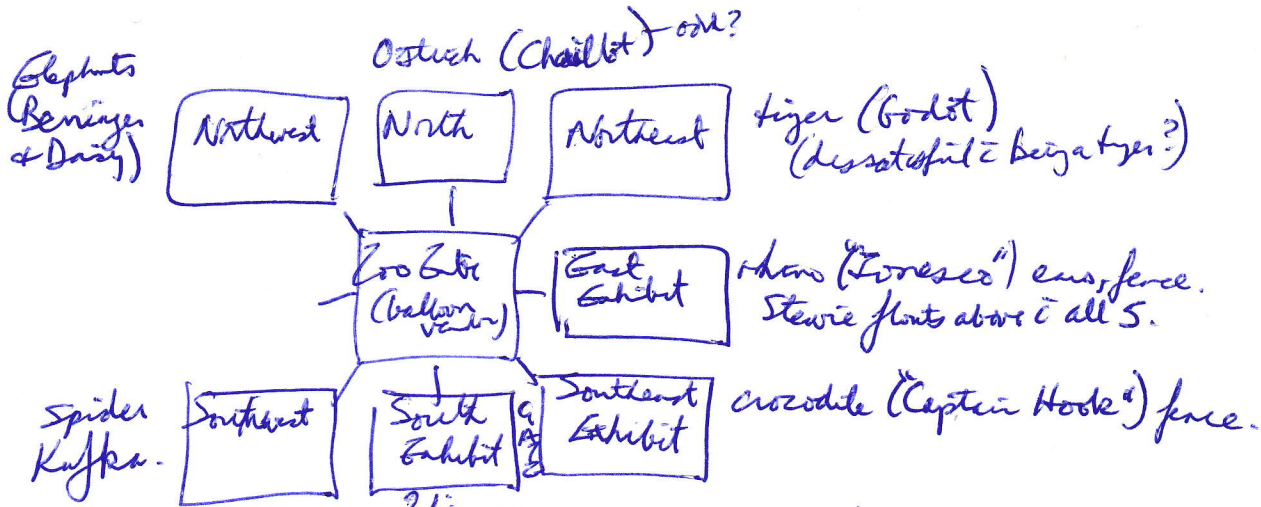 Ostrich (Chaillot) - odd?
Elephants
(Berringer
& Daisy)
Northwest
North
Northeast
tiger (Godot)
(dissatisfied c̄ being a tiger?)
Zoo Entr
(balloon
vendor)
East
Exhibit
rhino ("Ionesco") enor, fence.
Stewie floats above c̄ all 5.
Spider
Kafka.
Southwest
South
Exhibit
Southeast
Exhibit
crocodile ("Captain Hook") fence.